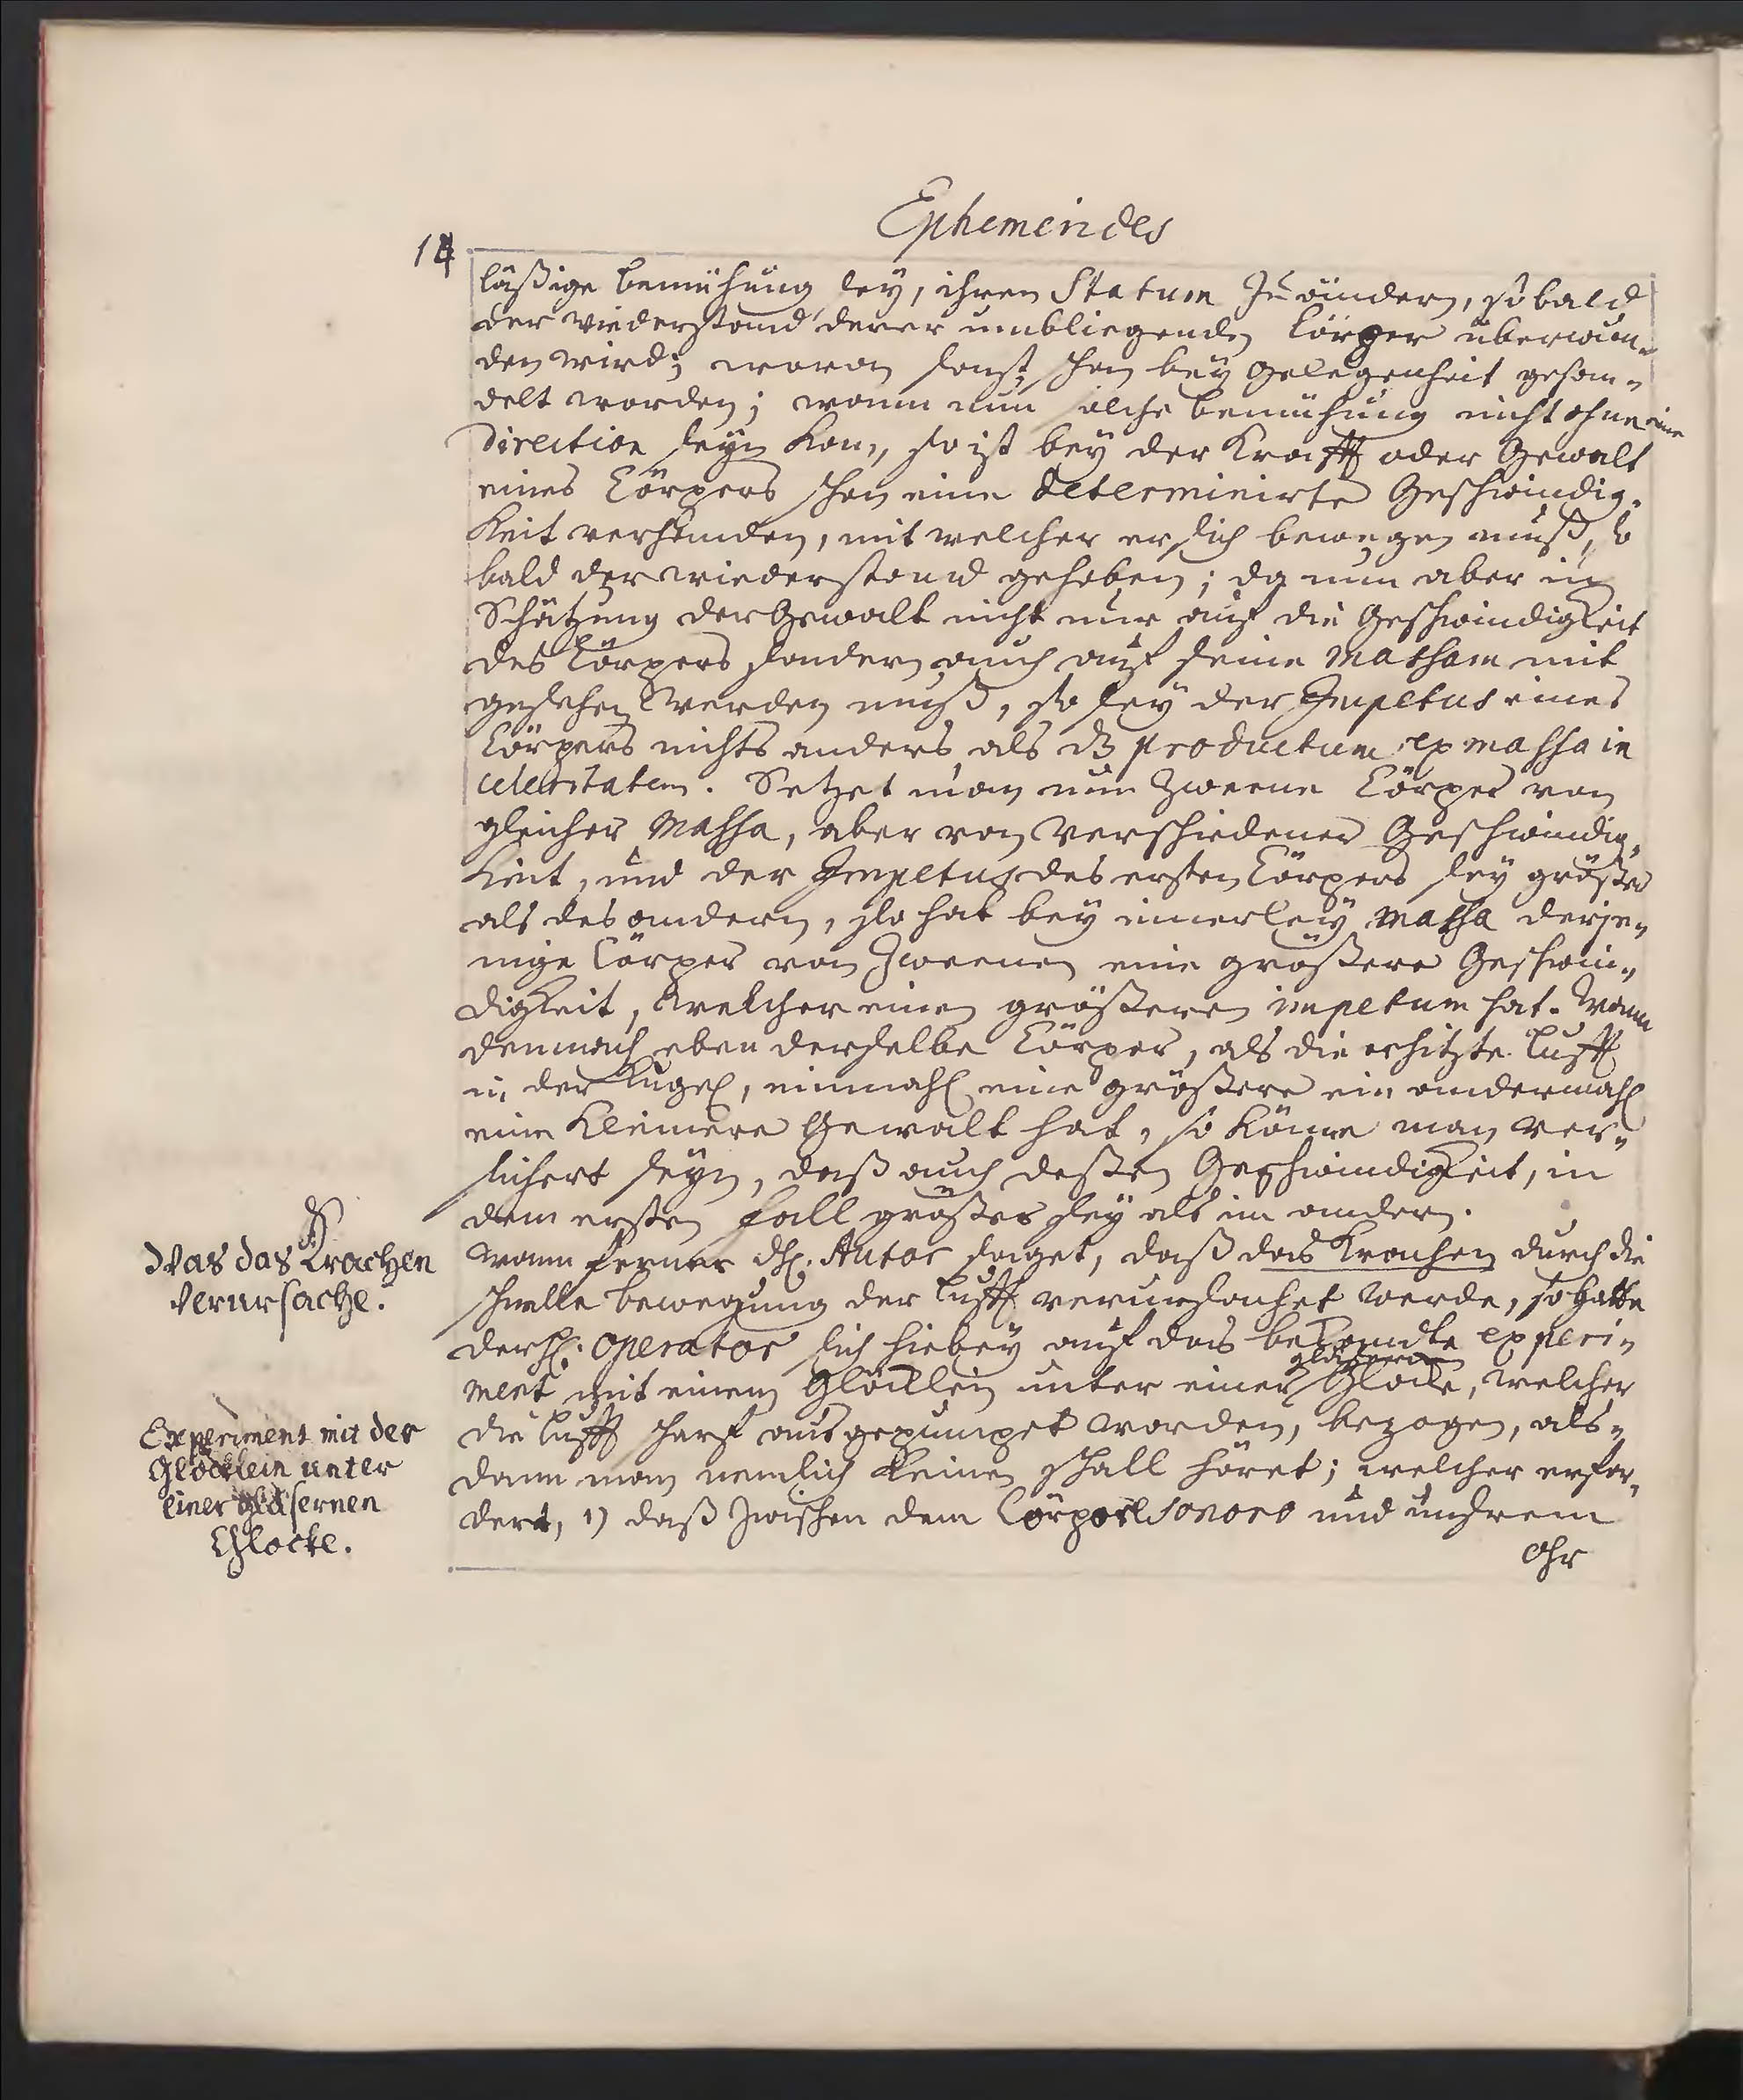 Ephemerides
14
läßige bemühung sey, ihren Statum zu ändern, so bald
der wiederstand derer umbliegenden Cörper überwun„
den wird; wovon sonst schon bey Gelegenheit gehan„
delt worden; wann nun solche bemühung nicht ohne eine
direction seyn kan, so ist bey der Krafft oder Gewalt
eines Cörpers schon eine determinirte Geschwindig„
keit verhanden, mit welcher er sich bewegen muß, so
bald der wiederstand gehoben; da nun aber in
Schätzung der Gewalt nicht nur auf die Geschwindigkeit
des Cörpers sondern auch auf seine Massam mit
gesehen werden muß, so sey der Impetus eines
Cörpers nichts anders als dz productum ex massa in
celeritatem. Setzet man nun zweene Cörper von
gleicher Massa, aber von verschiedener Geschwindig„
keit, und der Impetus des ersten Cörpers sey größer
als des andern, so hat bey einerley Massa derje„
nige Cörper von zweenen eine größere Geschwin„
digkeit, welcher einen größeren impetum hat. Wann
demnach eben derselbe Cörper, als die erhitzte Lufft
in der Kugel, einmahl eine größere ein andermahl
eine kleinere Gewalt hat, so könne man ver„
sichert seyn, daß auch deßen Geschwindigkeit, in
dem ersten Fall größer sey als im andern.
Was das Krachen
verursache.
Wann ferner H. Autor saget, daß das Krachen durch die
schnelle bewegung der Lufft verursachet werde, so hatte
der H. Operator sich hiebey auf das bekandte experi„
ment mit einem Glöcklein unter einer gläsernen Glocke, welcher
Experiment mit der
Glöcklein unter
einer gläsernen
Glocke.
die Lufft scharf ausgepumpet worden, bezogen, als„
dann man nemlich keinen schall höret; welcher erfor„
dert, 1) daß zwischen dem Corpore sonoro und unsrem
Ohr